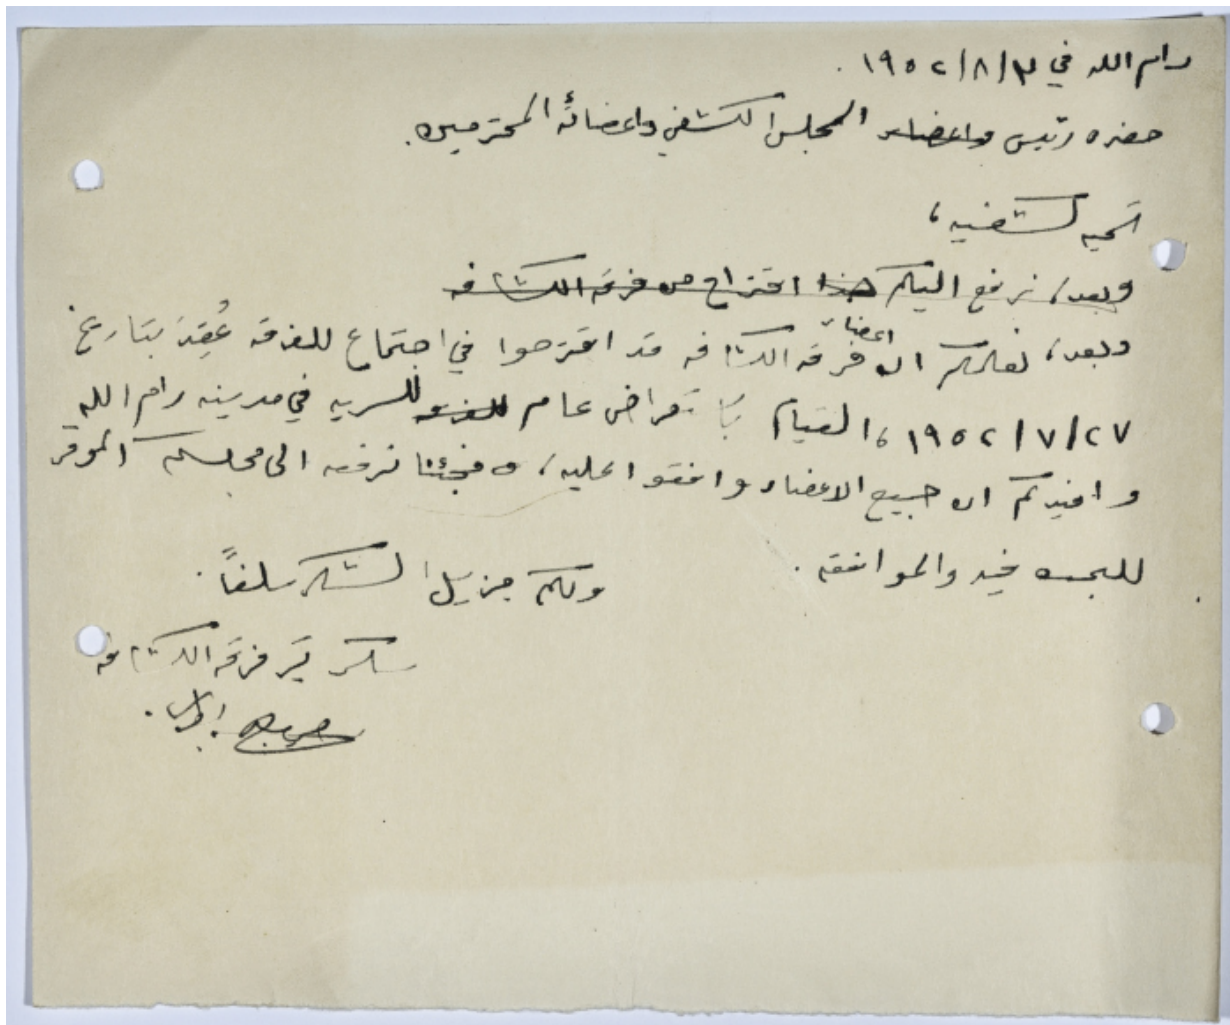 رام الله في ٣/٨/١٩٥٢.
حضره رئيس واعضاء المجلس الكشفي واعضائه المحترمين.
تحيه كشفيه،
وبعد، نرفع اليكم هذا اقتراح من فرقة الكشافه
وبعد، نعلمكم ان اعضاء فرقه الكشافه قد اقترحوا في اجتماع للفرقه عُقِدَ بتاريخ
٢٧/٧/١٩٥٢، القيام باستعراض عام للفرقه للسريه في مدينه رام الله
وافيدكم ان جميع الاعضاء وافقوا عليه، فجئنا نرفعه الى مجلسكم الموقر
للبحث فيه والموافقه.
ولكم جزيل الشكر سلفاً.
سكرتير فرقه الكشافه